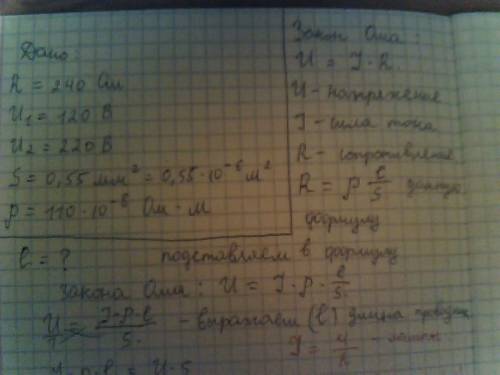 Дано:
R = 240 Ом
U₁ = 120 В
U₂ = 220 В
S = 0,55 мм² = 0,55·10⁻⁶ м²
ρ = 110·10⁻⁸ Ом·м
l = ?
Закон Ома:
U = I·R.
U - напряжение
I - сила тока
R - сопротивление
R = ρ l/S
формулу
подставляем в формулу
закона Ома: U = I·ρ·l/S.
U = I·ρ·l/S. - выражаем (l) длина
I = U/R
I·ρ·l = U·S